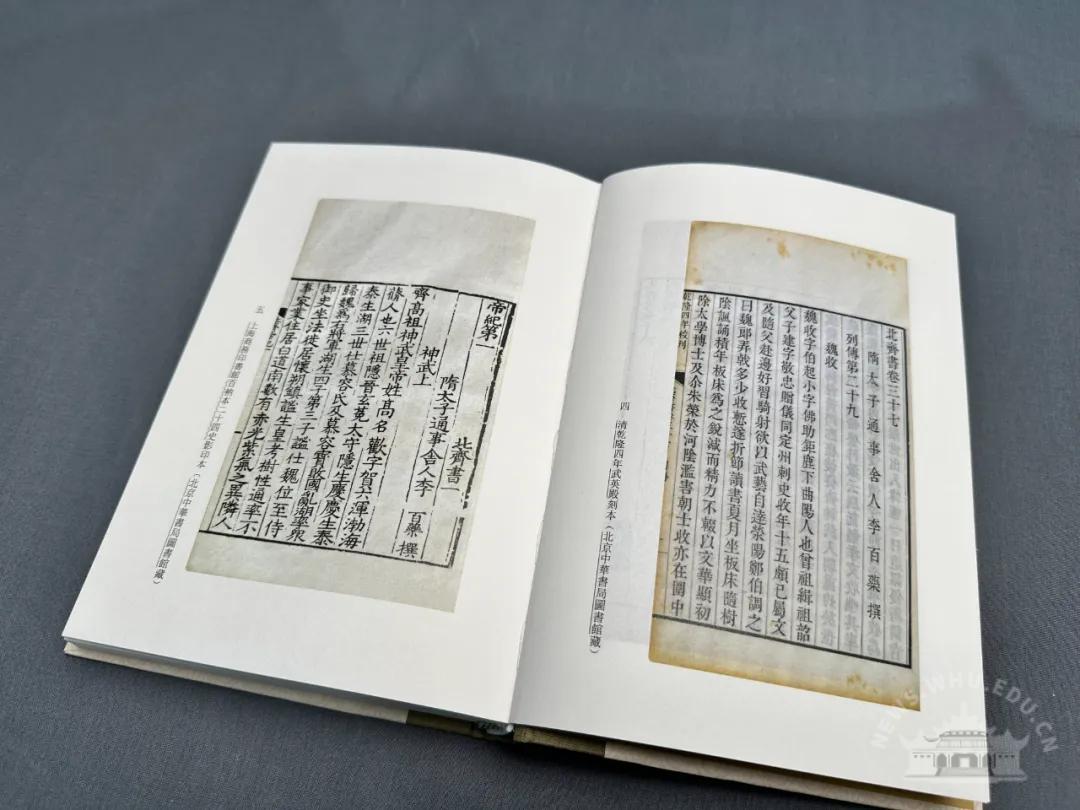 北齊書卷三十七
隋太子通事舍人李百藥撰
列傳第二十九
魏收
魏收字伯起小字佛助鉅鹿下曲陽人也曾祖緝祖韶
父子建字敬忠贈儀同定州刺史收年十五頗已屬文
及隨父赴邊好習騎射欲以武藝自達滎陽鄭伯調之
曰魏郎弄戟多少收慙遂折節讀書夏月坐板床隨樹
陰諷誦積年板床爲之銳減而精力不輟以文華顯初
除太學博士及尒朱榮於河陰濫害朝士收亦在圍中
乾隆四年校刊
四 清乾隆四年武英殿刻本(北京中華書局圖書館藏)
帝紀第一 北齊書一
隋太子通事舍人李 百藥 撰
神武上
齊高祖神武皇帝姓高名歡字賀六渾渤海
蓨人也六世祖隱晉玄菟太守隱生慶慶生泰
泰生湖三世仕慕容氏及慕容寶敗國亂湖率衆
歸魏爲右將軍湖生四子第三子謐仕魏位至侍
御史坐法徙居懷朔鎮謐生皇考樹性通率不
事家業住居白道南數有赤光紫氣之異隣人
五 上海商務印書館百衲本二十四史影印本(北京中華書局圖書館藏)
NEWS.WHU.EDU.CN